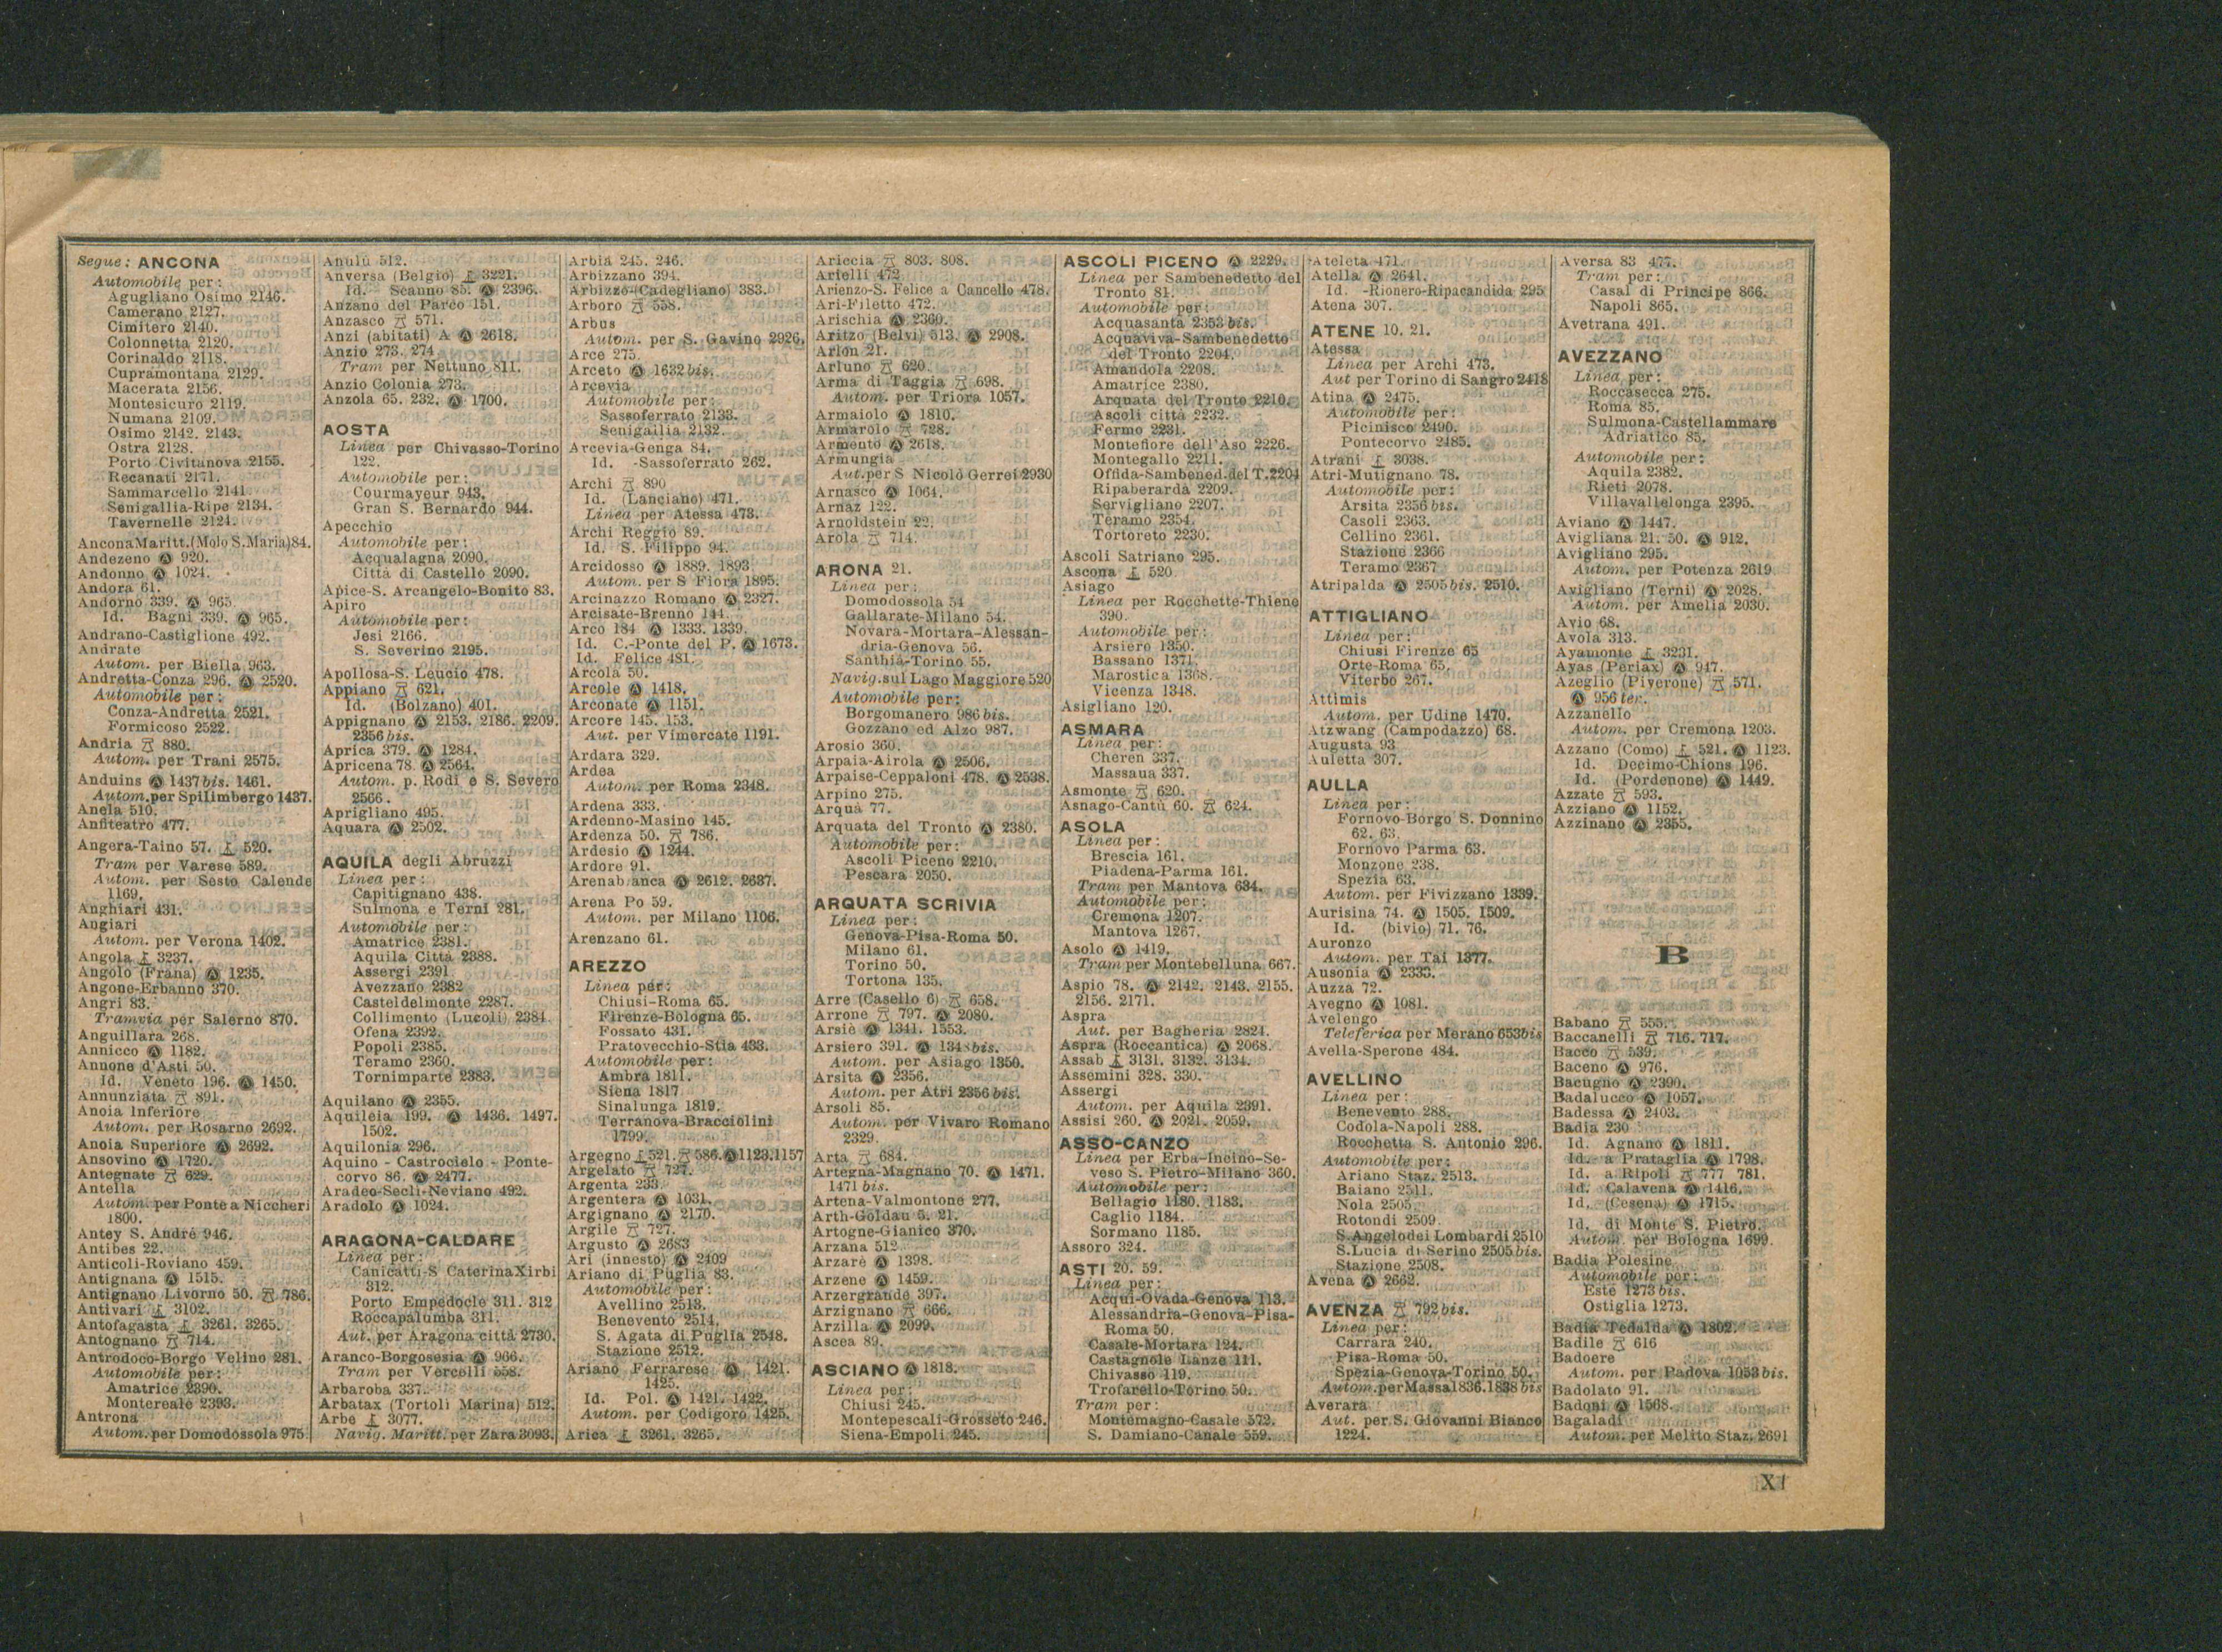 Segue: ANCONA
Automobile per:
Agugliano Osimo 2146.
Camerano 2127.
Cimitero 2140.
Colonnetta 2120.
Corinaldo 2118.
Cupramontana 2129.
Macerata 2156.
Montesicuro 2119.
Numana 2109.
Osimo 2142. 2143.
Ostra 2128.
Porto Civitanova 2155.
Recanati 2171.
Sammarcello 2141.
Senigallia-Ripe 2134.
Tavernelle 2124.
Ancona Maritt. (Molo S. Maria) 84.
Andezeno Ⓐ 920.
Andonno Ⓐ 1024.
Andora 61.
Andorno 339. Ⓐ 965.
Id. Bagni 339. Ⓐ 965.
Andrano-Castiglione 492.
Andrate
Autom. per Biella 963.
Andretta-Conza 296. Ⓐ 2520.
Automobile per:
Conza-Andretta 2521.
Formicoso 2522.
Andria 880.
Autom. per Trani 2575.
Anduins Ⓐ 1437 bis. 1461.
Autom. per Spilimbergo 1437.
Anela 510.
Anfiteatro 477.
Angera-Taino 57. 520.
Tram per Varese 589.
Autom. per Sesto Calende
1169.
Anghiari 431.
Angiari
Autom. per Verona 1402.
Angola 3237.
Angolo (Frana) Ⓐ 1235.
Angone-Erbanno 370.
Angri 83.
Tramvia per Salerno 870.
Anguillara 268.
Annicco Ⓐ 1182.
Annone d'Asti 50.
Id. Veneto 196. Ⓐ 1450.
Annunziata 891.
Anoia Inferiore
Autom. per Rosarno 2692.
Anoia Superiore Ⓐ 2692.
Ansovino Ⓐ 1720.
Antegnate 629.
Antella
Autom. per Ponte a Niccheri
1800.
Antey S. André 946.
Antibes 22.
Anticoli-Roviano 459.
Antignana Ⓐ 1515.
Antignano Livorno 50. 786.
Antivari 3102.
Antofagasta 3261. 3265.
Antognano 714.
Antrodoco-Borgo Velino 281.
Automobile per:
Amatrice 2390.
Montereale 2393.
Antrona
Autom. per Domodossola 975.
Anulù 512.
Anversa (Belgio) 3221.
Id. Scanno 85. Ⓐ 2396.
Anzano del Parco 151.
Anzasco 571.
Anzi (abitati) A Ⓐ 2618.
Anzio 273. 274
Tram per Nettuno 811.
Anzio Colonia 273.
Anzola 65. 232. Ⓐ 1700.
AOSTA
Linea per Chivasso-Torino
122.
Automobile per:
Courmayeur 943.
Gran S. Bernardo 944.
Apecchio
Automobile per:
Acqualagna 2090.
Città di Castello 2090.
Apice-S. Arcangelo-Bonito 83.
Apiro
Automobile per:
Jesi 2166.
S. Severino 2195.
Apollosa-S. Leucio 478.
Appiano 621.
Id. (Bolzano) 401.
Appignano Ⓐ 2153. 2186. 2209.
2356 bis.
Aprica 379. Ⓐ 1284.
Apricena 78. Ⓐ 2564.
Autom. p. Rodi e S. Severo
2566.
Aprigliano 495.
Aquara Ⓐ 2502.
AQUILA degli Abruzzi
Linea per:
Capitignano 438.
Sulmona e Terni 281.
Automobile per:
Amatrice 2381.
Aquila Città 2388.
Assergi 2391
Avezzano 2382
Casteldelmonte 2287.
Collimento (Lucoli) 2384
Ofena 2392.
Popoli 2385.
Teramo 2360.
Tornimparte 2383.
Aquilano Ⓐ 2355.
Aquileia 199. Ⓐ 1436. 1497.
1502.
Aquilonia 296.
Aquino - Castrocielo - Ponte-
corvo 86. Ⓐ 2477.
Aradeo-Seclì-Neviano 492.
Aradolo Ⓐ 1024.
ARAGONA-CALDARE
Linea per:
Canicattì-S Caterina Xirbi
312.
Porto Empedocle 311. 312
Roccapalumba 311.
Aut. per Aragona città 2730.
Aranco-Borgosesia Ⓐ 966.
Tram per Vercelli 558.
Arbaroba 337.
Arbatax (Tortoli Marina) 512.
Arbe 3077.
Navig. Maritt. per Zara 3093.
Arbia 245. 246.
Arbizzano 394.
Arbizzo (Cadegliano) 383.
Arboro 558.
Arbus
Autom. per S. Gavino 2926.
Arce 275.
Arceto Ⓐ 1632 bis.
Arcevia
Automobile per:
Sassoferrato 2133.
Senigallia 2132.
Arcevia-Genga 84.
Id. -Sassoferrato 262.
Archi 890
Id. (Lanciano) 471.
Linea per Atessa 473.
Archi Reggio 89.
Id. S. Filippo 94.
Arcidosso Ⓐ 1889. 1893
Autom. per S Fiora 1895.
Arcinazzo Romano Ⓐ 2327.
Arcisate-Brenno 144.
Arco 184 Ⓐ 1333. 1339.
Id. C.-Ponte del P. Ⓐ 1673.
Id. Felice 481.
Arcola 50.
Arcole Ⓐ 1418.
Arconate Ⓐ 1151.
Arcore 145. 153.
Aut. per Vimercate 1191.
Ardara 329.
Ardea
Autom. per Roma 2348.
Ardena 333.
Ardenno-Masino 145.
Ardenza 50. 786.
Ardesio Ⓐ 1244.
Ardore 91.
Arenab anca Ⓐ 2612. 2637.
Arena Po 59.
Autom. per Milano 1106.
Arenzano 61.
AREZZO
Linea per:
Chiusi-Roma 65.
Firenze-Bologna 65.
Fossato 431.
Pratovecchio-Stia 433.
Automobile per:
Ambra 1811.
Siena 1817
Sinalunga 1819.
Terranova-Bracciolini
1799.
Argegno 521. 586. Ⓐ 1123. 1157
Argelato 727.
Argenta 233.
Argentera Ⓐ 1031.
Argignano Ⓐ 2170.
Argile 727.
Argusto Ⓐ 2683
Ari (innesto) Ⓐ 2409
Ariano di Puglia 83.
Automobile per:
Avellino 2513.
Benevento 2514.
S. Agata di Puglia 2548.
Stazione 2512.
Ariano Ferrarese Ⓐ 1421.
1425.
Id. Pol. Ⓐ 1421. 1422.
Autom. per Codigoro 1425.
Arica 3261. 3265.
Ariccia 803. 808.
Arielli 472.
Arienzo-S. Felice a Cancello 478.
Ari-Filetto 472.
Arischia Ⓐ 2360.
Aritzo (Belvì) 513. Ⓐ 2908.
Arlon 21.
Arluno 620.
Arma di Taggia 698.
Autom. per Triora 1057.
Armaiolo Ⓐ 1810.
Armarolo 728.
Armento Ⓐ 2618.
Armungia
Aut. per S Nicolò Gerrei 2930
Arnasco Ⓐ 1064.
Arnaz 122.
Arnoldstein 22.
Arola 714.
ARONA 21.
Linea per:
Domodossola 54
Gallarate-Milano 54.
Novara-Mortara-Alessan-
dria-Genova 56.
Santhià-Torino 55.
Navig. sul Lago Maggiore 520
Automobile per:
Borgomanero 986 bis.
Gozzano ed Alzo 987.
Arosio 360.
Arpaia-Airola Ⓐ 2506.
Arpaise-Ceppaloni 478. Ⓐ 2538.
Arpino 275.
Arquà 77.
Arquata del Tronto Ⓐ 2380.
Automobile per:
Ascoli Piceno 2210.
Pescara 2050.
ARQUATA SCRIVIA
Linea per:
Genova-Pisa-Roma 50.
Milano 61.
Torino 50.
Tortona 135.
Arre (Casello 6) 658.
Arrone 797. Ⓐ 2080.
Arsiè Ⓐ 1341. 1553.
Arsiero 391. Ⓐ 134 bis.
Autom. per Asiago 1350.
Arsita Ⓐ 2356.
Autom. per Atri 2356 bis.
Arsoli 85.
Autom. per Vivaro Romano
2329.
Arta 684.
Artegna-Magnano 70. Ⓐ 1471.
1471 bis.
Artena-Valmontone 277.
Arth-Goldau 5. 21.
Artogne-Gianico 370.
Arzana 512
Arzarè Ⓐ 1398.
Arzene Ⓐ 1459.
Arzergrande 397.
Arzignano 666.
Arzilla Ⓐ 2099.
Ascea 89.
ASCIANO Ⓐ 1818.
Linea per:
Chiusi 245.
Montepescali-Grosseto 246.
Siena-Empoli 245.
ASCOLI PICENO Ⓐ 2229.
Linea per Sambenedetto del
Tronto 81.
Automobile per:
Acquasanta 2353 bis.
Acquaviva-Sambenedetto
del Tronto 2204.
Amandola 2208.
Amatrice 2380.
Arquata del Tronto 2210.
Ascoli città 2232.
Fermo 2231.
Montefiore dell'Aso 2226.
Montegallo 2211.
Offida-Sambened. del T. 2204
Ripaberarda 2209.
Servigliano 2207.
Teramo 2354.
Tortoreto 2230.
Ascoli Satriano 295.
Ascona 520
Asiago
Linea per Rocchette-Thiene
390.
Automobile per:
Arsiero 1350.
Bassano 1371.
Marostica 1368.
Vicenza 1348.
Asigliano 120.
ASMARA
Linea per:
Cheren 337.
Massaua 337.
Asmonte 620.
Asnago-Cantù 60. 624.
ASOLA
Linea per:
Brescia 161.
Piadena-Parma 161.
Tram per Mantova 634.
Automobile per:
Cremona 1207.
Mantova 1267.
Asolo Ⓐ 1419.
Tram per Montebelluna 667.
Aspio 78. Ⓐ 2142. 2143. 2155.
2156. 2171.
Aspra
Aut. per Bagheria 2821.
Aspra (Roccantica) Ⓐ 2068.
Assab 3131. 3132. 3134.
Assemini 328. 330.
Assergi
Autom. per Aquila 2391.
Assisi 260. Ⓐ 2021. 2059.
ASSO-CANZO
Linea per Erba-Incino-Se-
veso S. Pietro-Milano 360.
Automobile per:
Bellagio 1180. 1183.
Caglio 1184.
Sormano 1185.
Assoro 324.
ASTI 20. 59.
Linea per:
Acqui-Ovada-Genova 113.
Alessandria-Genova-Pisa-
Roma 50.
Casale-Mortara 124.
Castagnole Lanze 111.
Chivasso 119.
Trofarello-Torino 50.
Tram per:
Montemagno-Casale 572.
S. Damiano-Canale 559.
Ateleta 471.
Atella Ⓐ 2641.
Id. -Rionero-Ripacandida 295
Atena 307.
ATENE 10. 21.
Atessa
Linea per Archi 473.
Aut per Torino di Sangro 2418
Atina Ⓐ 2475.
Automobile per:
Picinisco 2490.
Pontecorvo 2485.
Atrani 3038.
Atri-Mutignano 78.
Automobile per:
Arsita 2356 bis.
Casoli 2363.
Cellino 2361.
Stazione 2366
Teramo 2367
Atripalda Ⓐ 2505 bis. 2510.
ATTIGLIANO
Linea per:
Chiusi Firenze 65
Orte-Roma 65.
Viterbo 267.
Attimis
Autom. per Udine 1470.
Atzwang (Campodazzo) 68.
Augusta 93
Auletta 307.
AULLA
Linea per:
Fornovo-Borgo S. Donnino
62. 63.
Fornovo Parma 63.
Monzone 238.
Spezia 63.
Autom. per Fivizzano 1339.
Aurisina 74. Ⓐ 1505. 1509.
Id. (bivio) 71. 76.
Auronzo
Autom. per Tai 1377.
Ausonia Ⓐ 2333.
Auzza 72.
Avegno Ⓐ 1081.
Avelengo
Teleferica per Merano 653 bis
Avella-Sperone 484.
AVELLINO
Linea per:
Benevento 288.
Codola-Napoli 288.
Rocchetta S. Antonio 296.
Automobile per:
Ariano Staz. 2513.
Baiano 2511.
Nola 2505
Rotondi 2509.
S. Angelo dei Lombardi 2510
S. Lucia di Serino 2505 bis.
Stazione 2508.
Avena Ⓐ 2662.
AVENZA 792 bis.
Linea per:
Carrara 240.
Pisa-Roma 50.
Spezia-Genova-Torino 50.
Autom. per Massa 1836. 1838 bis
Averara
Aut. per S. Giovanni Bianco
1224.
Aversa 83 477.
Tram per:
Casal di Principe 866.
Napoli 865.
Avetrana 491.
AVEZZANO
Linea per:
Roccasecca 275.
Roma 85.
Sulmona-Castellammare
Adriatico 85.
Automobile per:
Aquila 2382.
Rieti 2078.
Villavallelonga 2395.
Aviano Ⓐ 1447.
Avigliana 21. 50. Ⓐ 912.
Avigliano 295.
Autom. per Potenza 2619
Avigliano (Terni) Ⓐ 2028.
Autom. per Amelia 2030.
Avio 68.
Avola 313.
Ayamonte 3231.
Ayas (Periax) Ⓐ 947.
Azeglio (Piverone) 571.
Ⓐ 956 ter.
Azzanello
Autom. per Cremona 1203.
Azzano (Como) 521. Ⓐ 1123.
Id. Decimo-Chions 196.
Id. (Pordenone) Ⓐ 1449.
Azzate 593.
Azziano Ⓐ 1152.
Azzinano Ⓐ 2355.
B
Babano 555.
Baccanelli 716. 717.
Bacco 539.
Baceno Ⓐ 976.
Bacugno Ⓐ 2390.
Badalucco Ⓐ 1057.
Badessa Ⓐ 2403.
Badia 230
Id. Agnano Ⓐ 1811.
Id. a Prataglia Ⓐ 1798.
Id. a Ripoli 777 781.
Id. Calavena Ⓐ 1416.
Id. (Cesena) Ⓐ 1715.
Id. di Monte S. Pietro.
Autom. per Bologna 1699.
Badia Polesine
Automobile per:
Este 1273 bis.
Ostiglia 1273.
Badia Tedalda Ⓐ 1802.
Badile 616
Badoere
Autom. per Padova 1053 bis.
Badolato 91.
Badoni Ⓐ 1568.
Bagaladi
Autom. per Melito Staz. 2691
XI